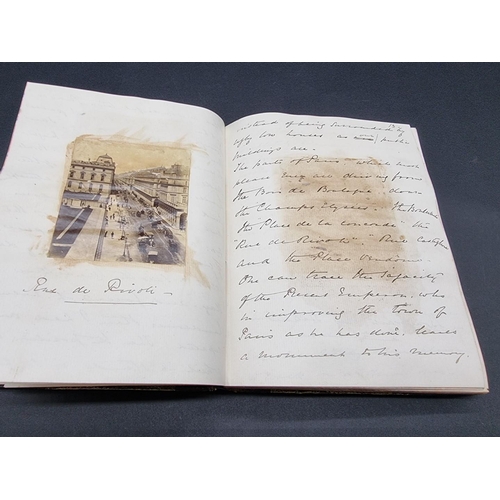 Rue de Rivoli -
instead of being surrounded by
ugly low houses as our public
buildings are.
The parts of Paris which most
please me, are driving from
the Bois de Bologne down
the Champs Elysees. the
the Place de la Concorde, the
"Rue de Rivoli" Rue Castiglione
and the Place Vendome.
One can trace the sagacity
of the Present Emperor, who
in improving the town of
Paris as he has done, leaves
a monument to his memory.